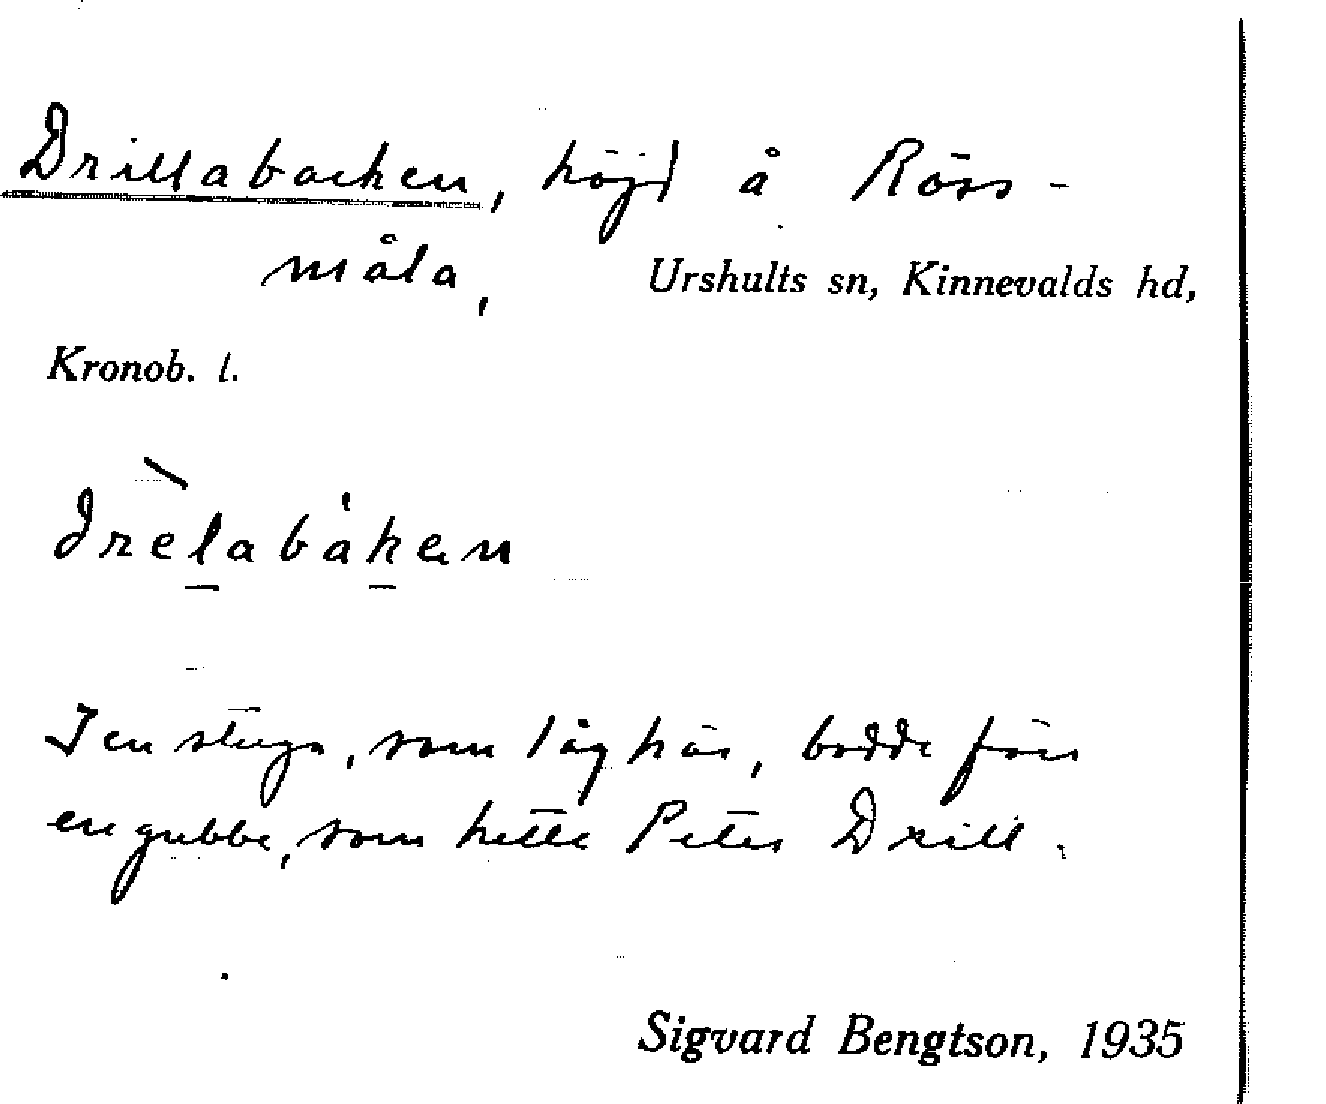 Drillabacken, höjd å Röss-
måla, Urshults sn, Kinnevalds hd,
Kronob. l.
drèlabákən
I en stuga, som låg här, bodde förr
en gubbe, som hette Peter Drill.
Sigvard Bengtson, 1935